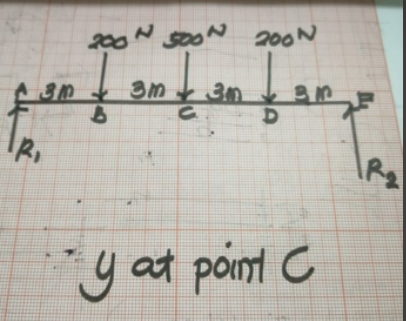 200 N 500 N 200 N
A 3m 3m 3m 3m E
B C D
R1
R2
y at point C